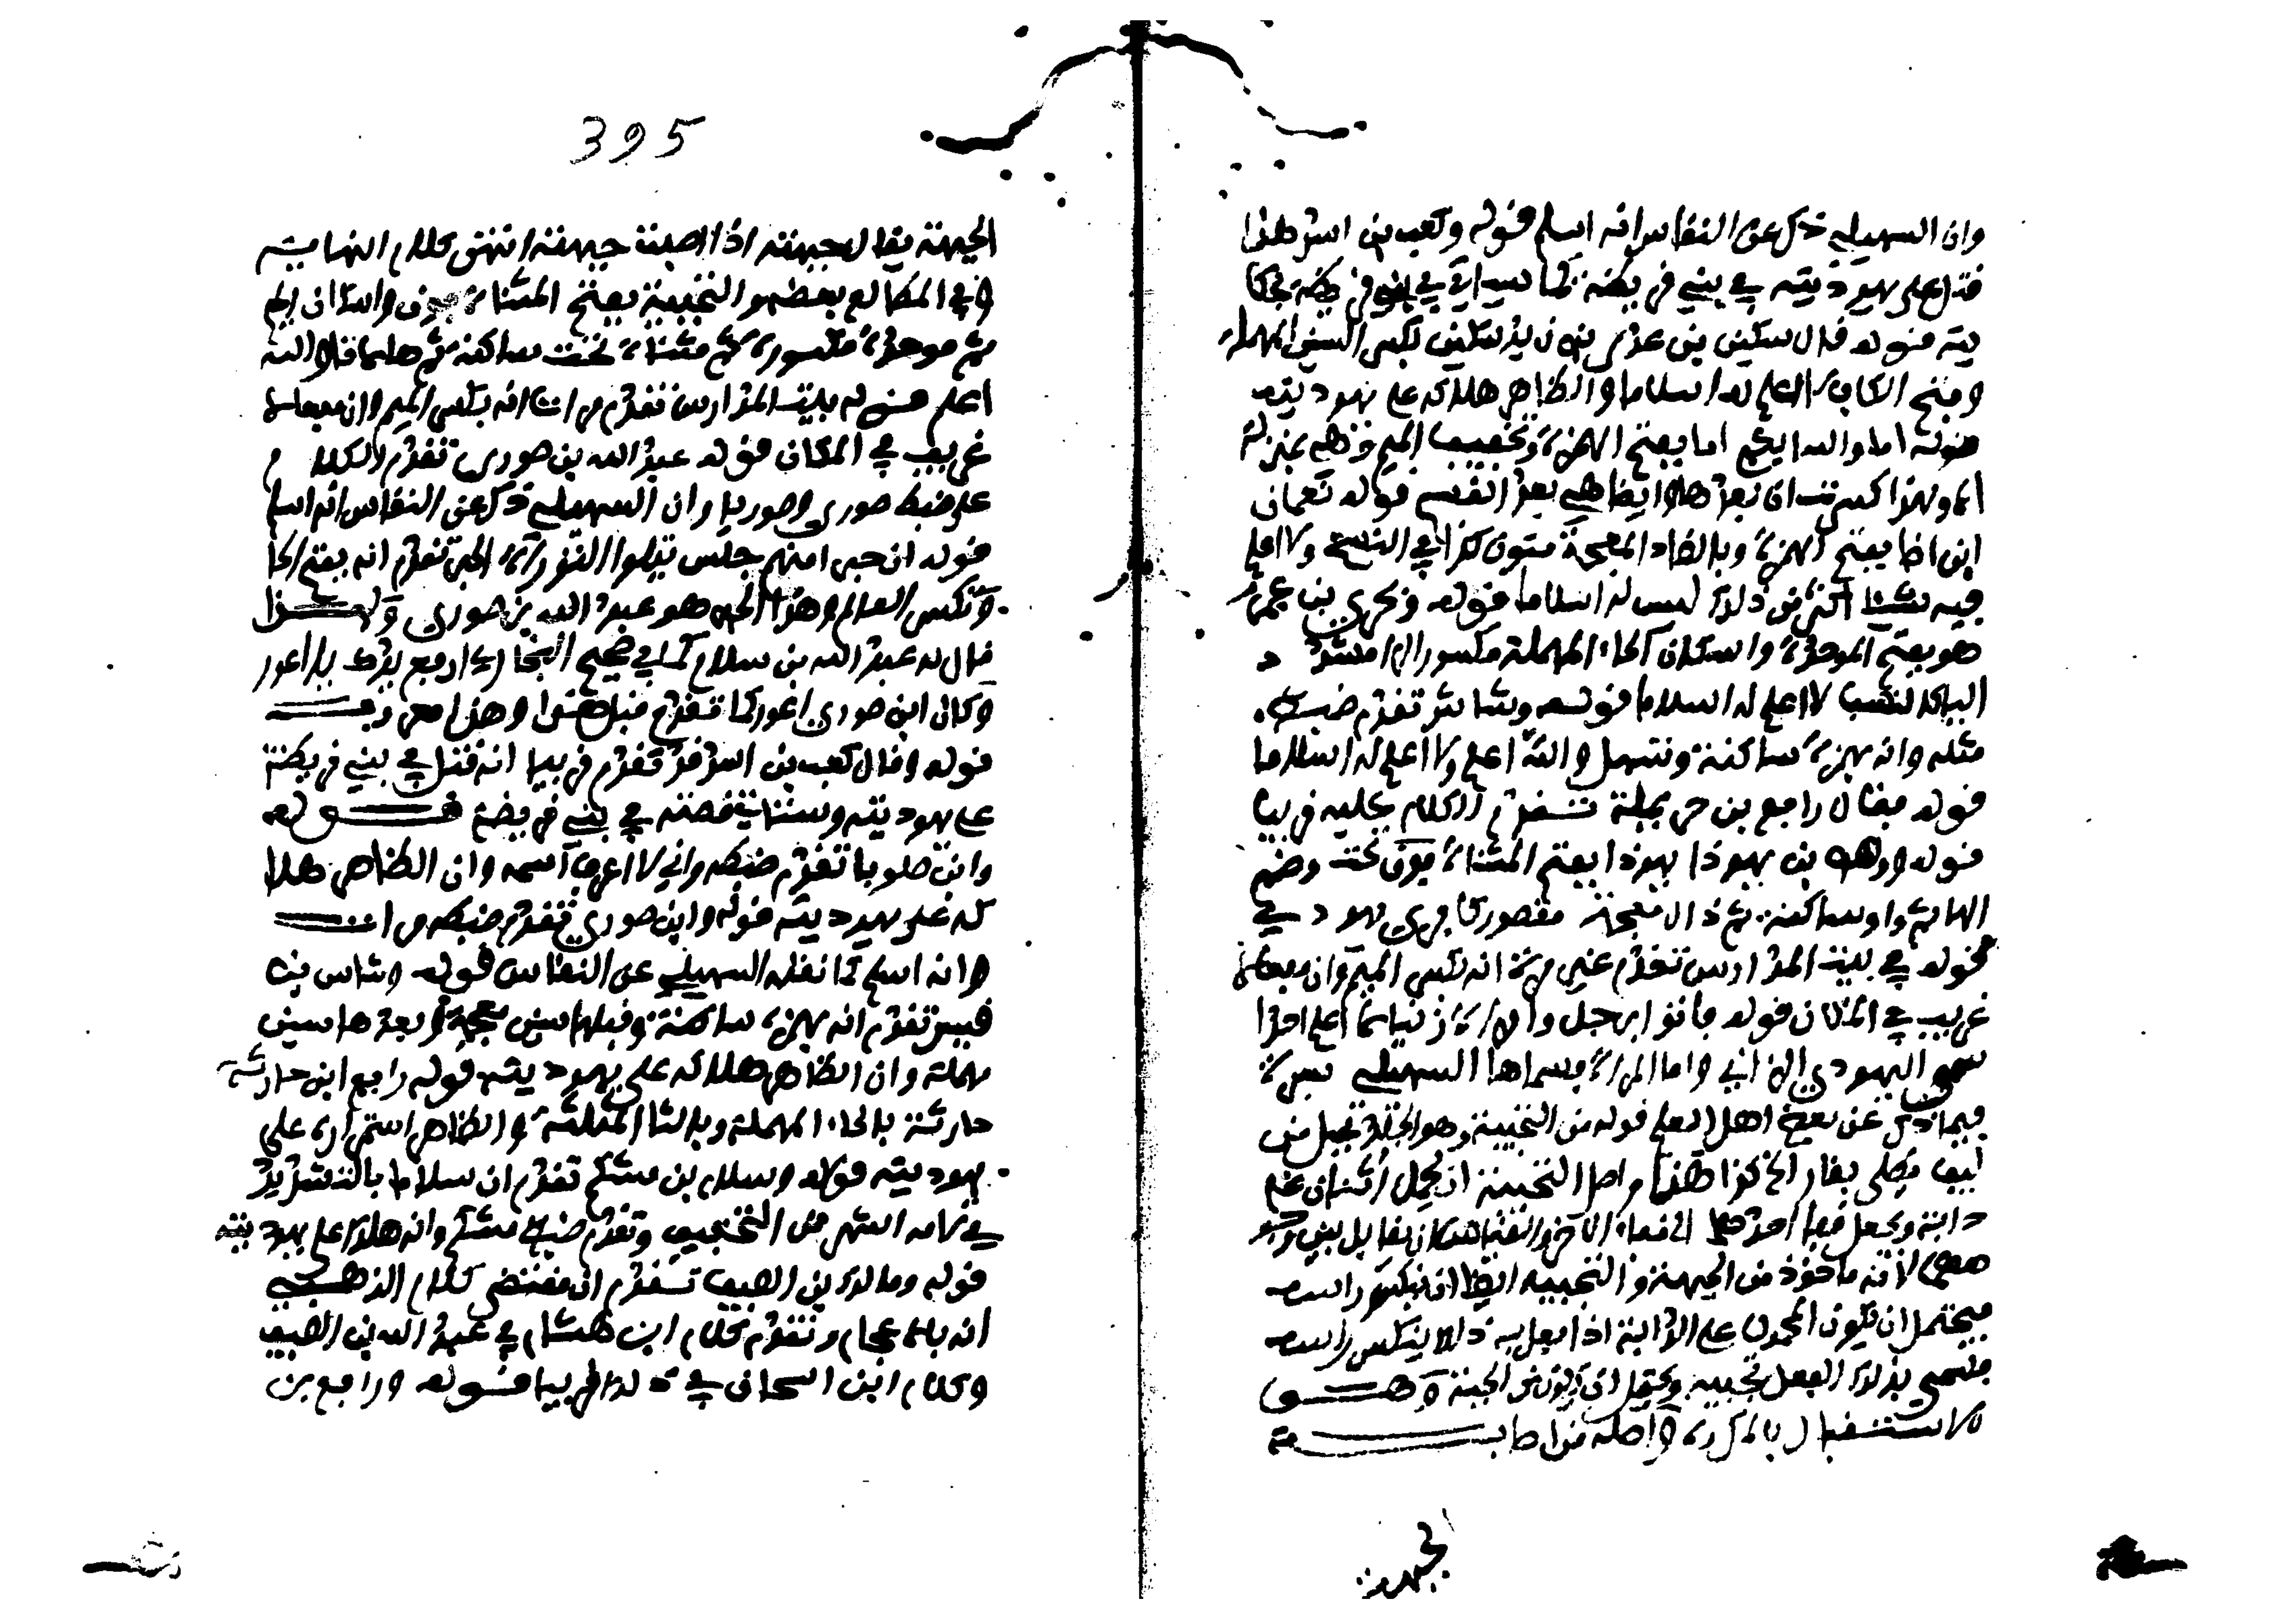 وان السهيلي ذكر عن النقاش انه اسلم قوله وكعب بن اسد هذا
قتل على يهوديته في بني قريظة كما سياتي في بني قريظة محكا
يته قوله قال سكين بن عدى بن زيد سكين بكسر السين المهملة
وفتح الكاف لا اعلم له اسلاما والظاهر هلاكه على يهوديته
قوله اما والله ايكم اما بفتح الهمزة وتخفيف الميم وهي بمنزلة
الا ولهذا كسرت ان بعدها وايضا هي بعد القسم قوله نعمان
ابن اضا بفتح الهمزة وبالضاد المعجمة منون كذا في النسخ ولا اعلم
فيه شيئا اكثر من ذلك ليس له اسلاما قوله وبحرى بن عمرو
هو بفتح الموحدة واسكان الحاء المهملة مكسور الراء مشدد
الياء كالنسب لا اعلم له اسلاما قوله وشاس تقدم ضبطه
مثله وانه بهمزة ساكنة وتسهل والله اعلم ولا اعلم له اسلاما
قوله فقال رافع بن حريملة تقدم الكلام عليه قريبا
قوله ووهب بن يهوذا يهوذا بفتح المثناة فوق تحت وضم
الهاء ثم واو ساكنة ثم ذال معجمة مقصور كما جرى يهود في
قوله في بيت المدارس تقدم غير مرة انه بكسر الميم وان مفعالا
غريب في المكان قوله فاتوا برجل وامراة زنيا لا اعلم احدا
سمى اليهودي الزاني واما المراة فسماها السهيلي بسرة
فيما ذكر عن بعض اهل العلم قوله من التجبية وهو الجلد بحبل من
ليف مطلى بقار الخ كذا هنا واصل التجبية ان يحمل اثنان على
دابة ويجعل قفا احدهما الى قفا الاخر والقياس ان يقابل بين وجو
ههما لانه ماخوذ من الجبهة والتجبيه ايضا ان ينكس راسه
فيحتمل ان يكون المحمول على الدابة اذا فعل به ذلك ينكس راسه
فسمى بذلك الفعل تجبيه ويحتمل ان يكون من الجبه وهو
الاستقبال بالمكروه واصله من اصابة
الجبهة
395
الجبهة يقال جبهته اذا اصبت جبهته انتهى كلام النهاية
وفي المطالع بعضهم التجبية بفتح المثناة فوق واسكان الجيم
ثم موحدة مكسورة ثم مثناة تحت ساكنة ثم هاء ما قاله والله
اعلم قوله بيت المدارس تقدم مرات انه بكسر الميم وان مفعالا
غريب في المكان قوله عبد الله بن صوري تقدم الكلام
على ضبط صوري وصوريا وان السهيلي ذكر عن النقاش انه اسلم
قوله ان حبرا منهم جلس يتلوا التوراة الحبر تقدم انه بفتح الحا
وتكسر العالم وهذا الحبر هو عبد الله بن صوري ولهذا
قال له عبد الله بن سلام كما في صحيح البخاري ارفع يدك يا اعور
وكان ابن صوري اعور كما تقدم قبل هذا وهذا معروف
قوله وقال كعب بن اسد قد تقدم قريبا انه قتل في بني قريظة
على يهوديته وستاتي قصته في بني قريظة قوله
وابن صلوبا تقدم ضبطه واني لا اعرف اسمه وان الظاهر هلا
كه على يهوديته قوله وابن صوري تقدم ضبطه مرات
وانه اسلم كما نقله السهيلي عن النقاش قوله وشاس بن
قيس تقدم انه بهمزة ساكنة وقبلها شين معجمة وبعدها سين
مهملة وان الظاهر هلاكه على يهوديته قوله رافع ابن حارثة
حارثة بالحاء المهملة وبالثا المثلثة والظاهر استمراره على
يهوديته قوله وسلام بن مشكم تقدم ان سلاما بالتشديد
في لامه اشهر من التخفيف وتقدم ضبط مشكم وانه هلك على يهوديته
قوله ومالك بن الصيف تقدم ان مقتضى كلام الذهبي
انه بالاعجام وتقدم كلام ابن هشام في عبد الله بن الصيف
وكلام ابن اسحاق في ذلك قريبا قوله ورافع بن